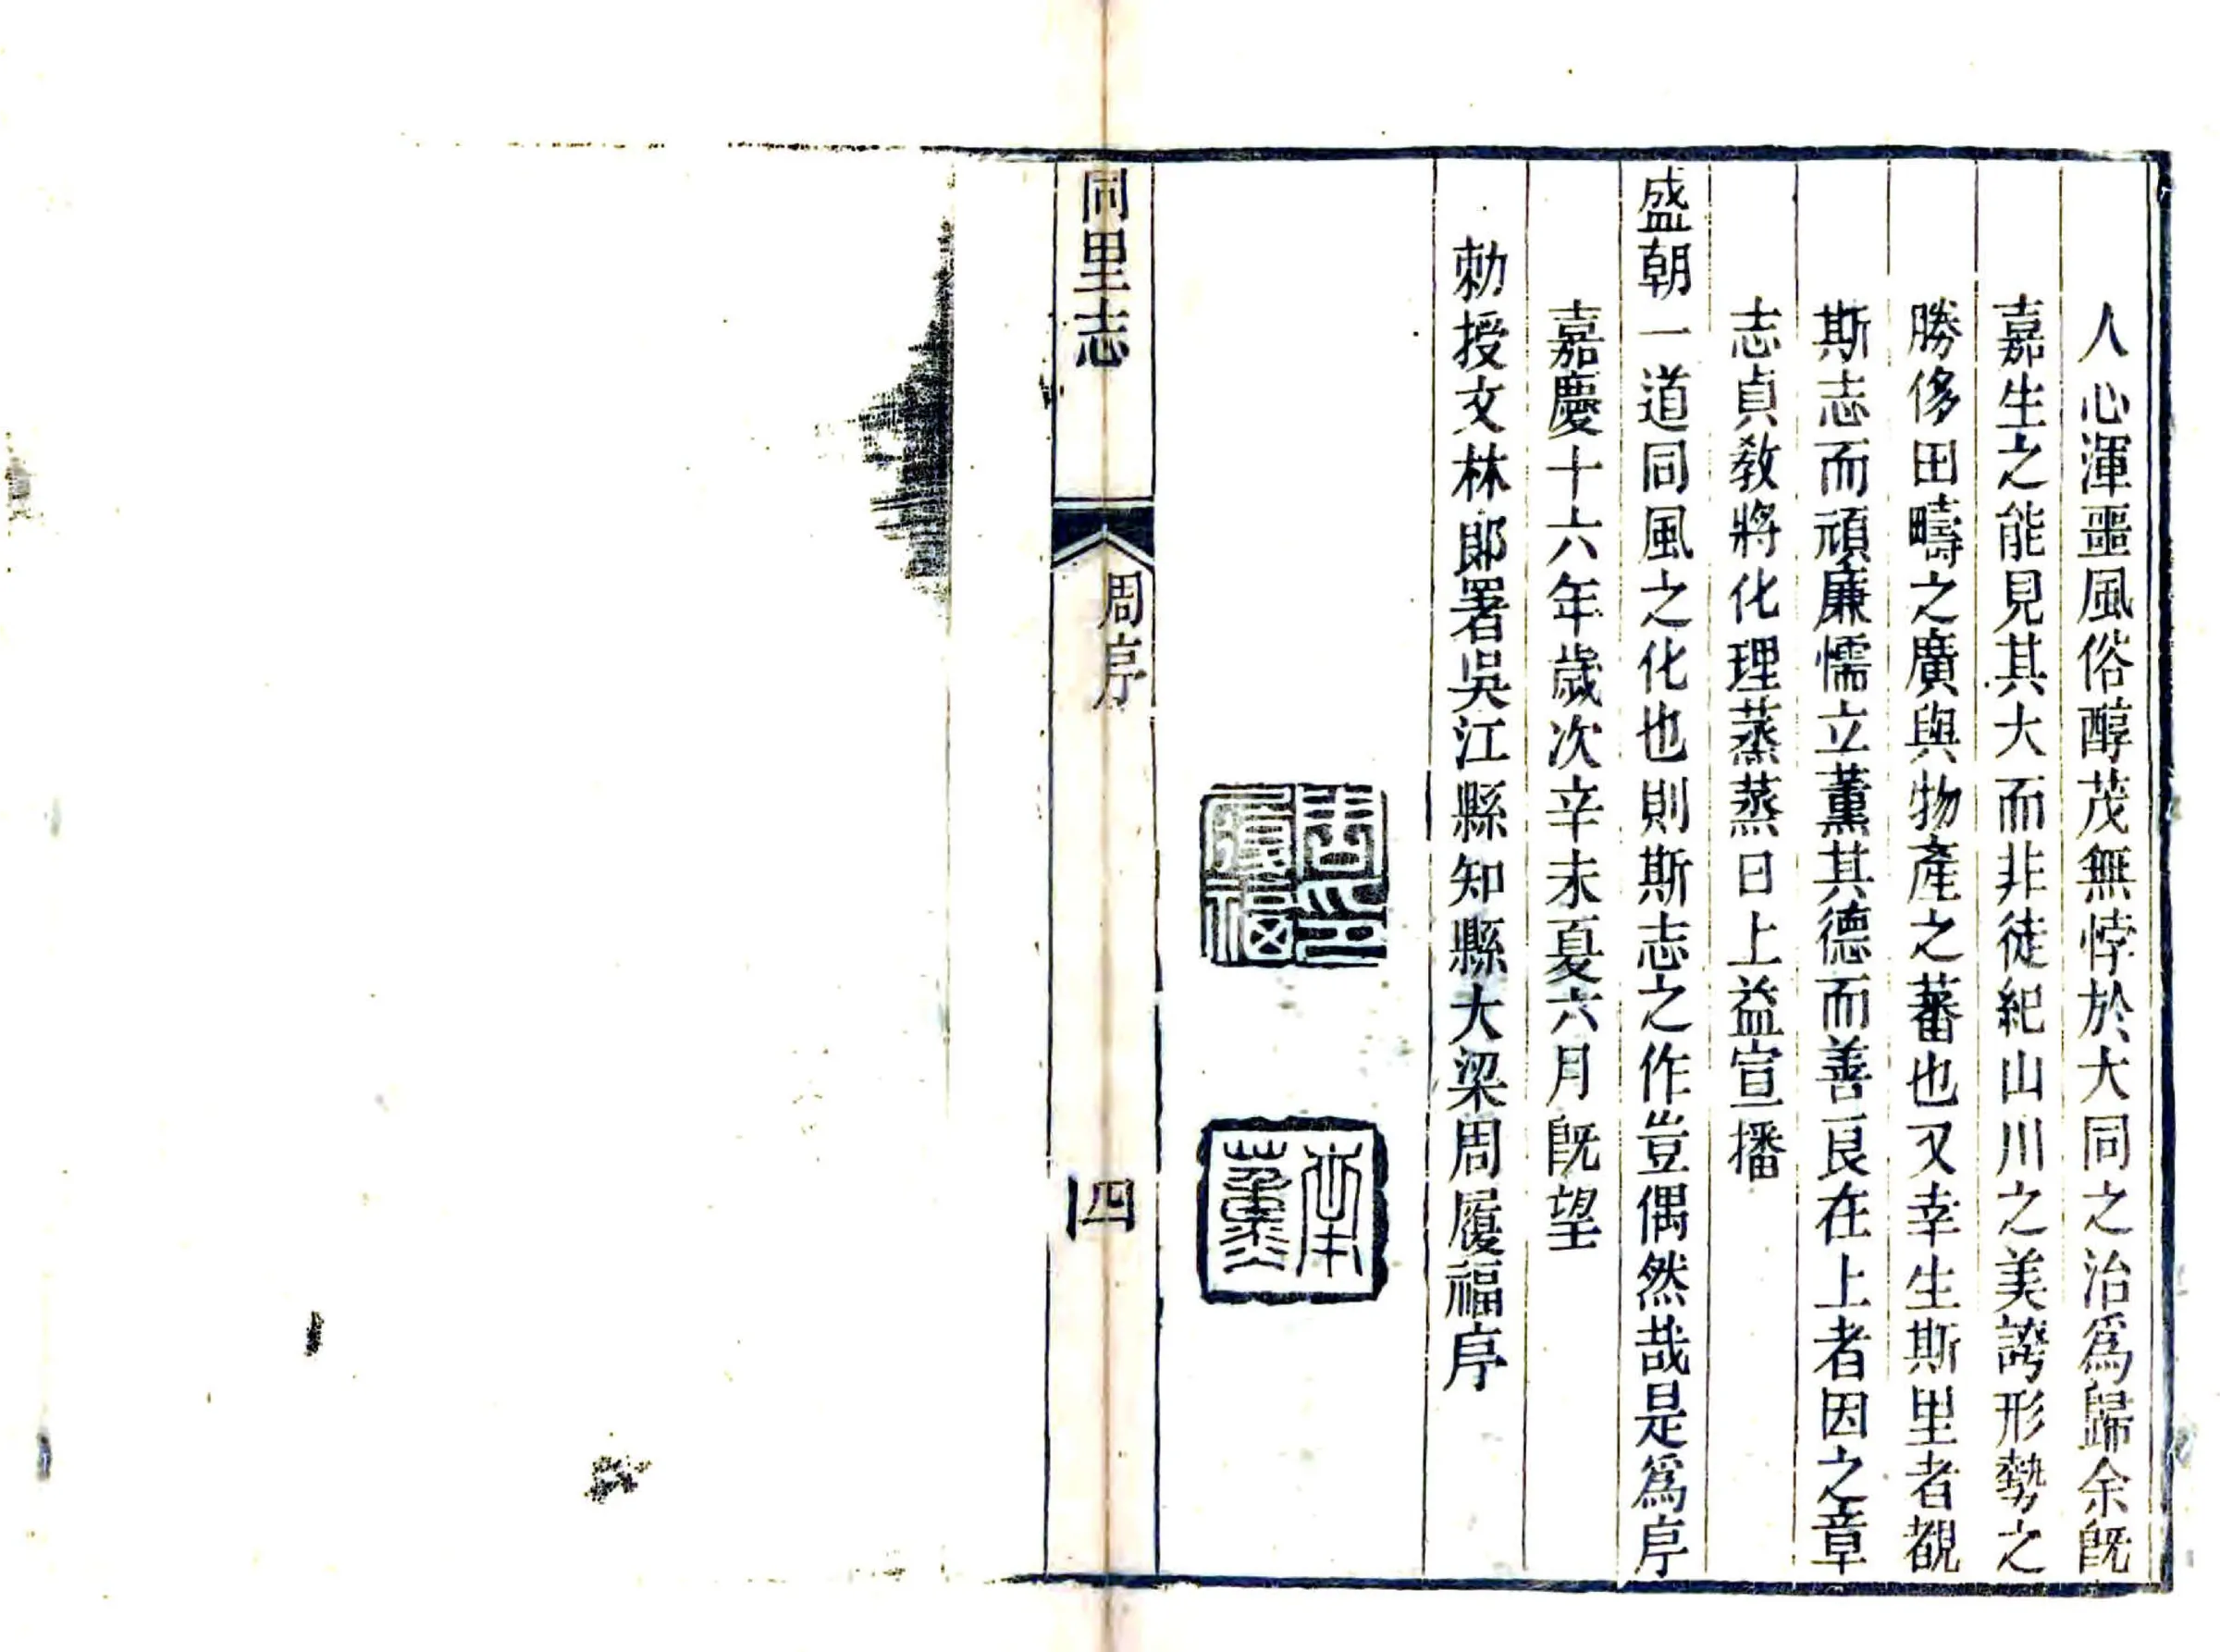 人心渾噩風俗醇茂無悖於大同之治爲歸余旣
嘉生之能見其大而非徒紀山川之美誇形勢之
勝侈田疇之廣與物產之蕃也又幸生斯里者覩
斯志而頑廉懦立薰其德而善良在上者因之章
志貞敎將化理蒸蒸日上益宣播
盛朝一道同風之化也則斯志之作豈偶然哉是爲序
嘉慶十六年歲次辛未夏六月旣望
勅授文林郞署吳江縣知縣大梁周履福序
周印
履福
同里志
周序
四